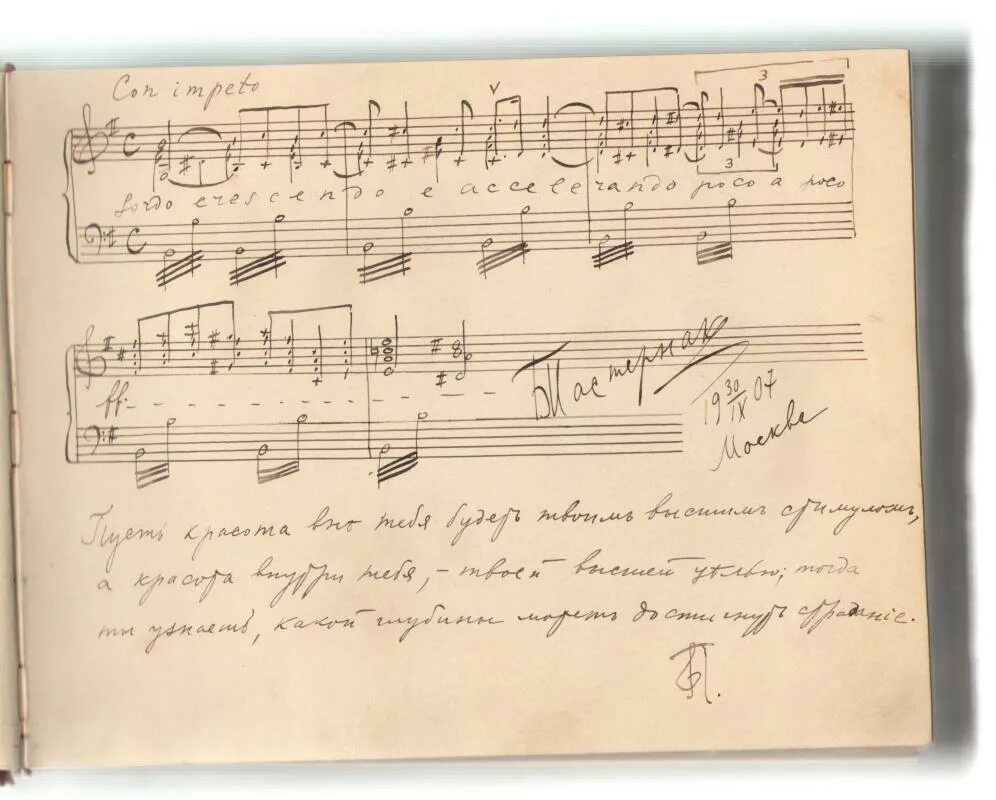 Con impeto
3
3
sordo crescendo e accelerando poco a poco
ff.
БПастернак
19 30/IX 07
Москва
Пусть красота внѣ тебя будетъ твоимъ высшимъ стимуломъ,
а красота внутри тебя, – твоей высшей цѣлью; тогда
ты узнаешь, какой глубины можетъ достигнуть страданіе.
БП.